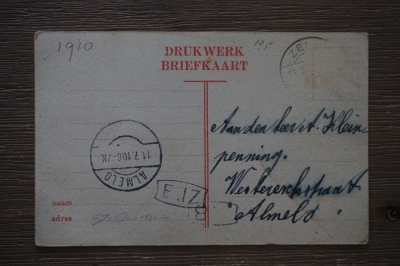 1910
DRUKWERK
BRIEFKAART
ZE
11.7.10 6-7N
ALMELO
Aan den heer A. Klein-
penning.
Almelo
naam
adres
Z1.E
B